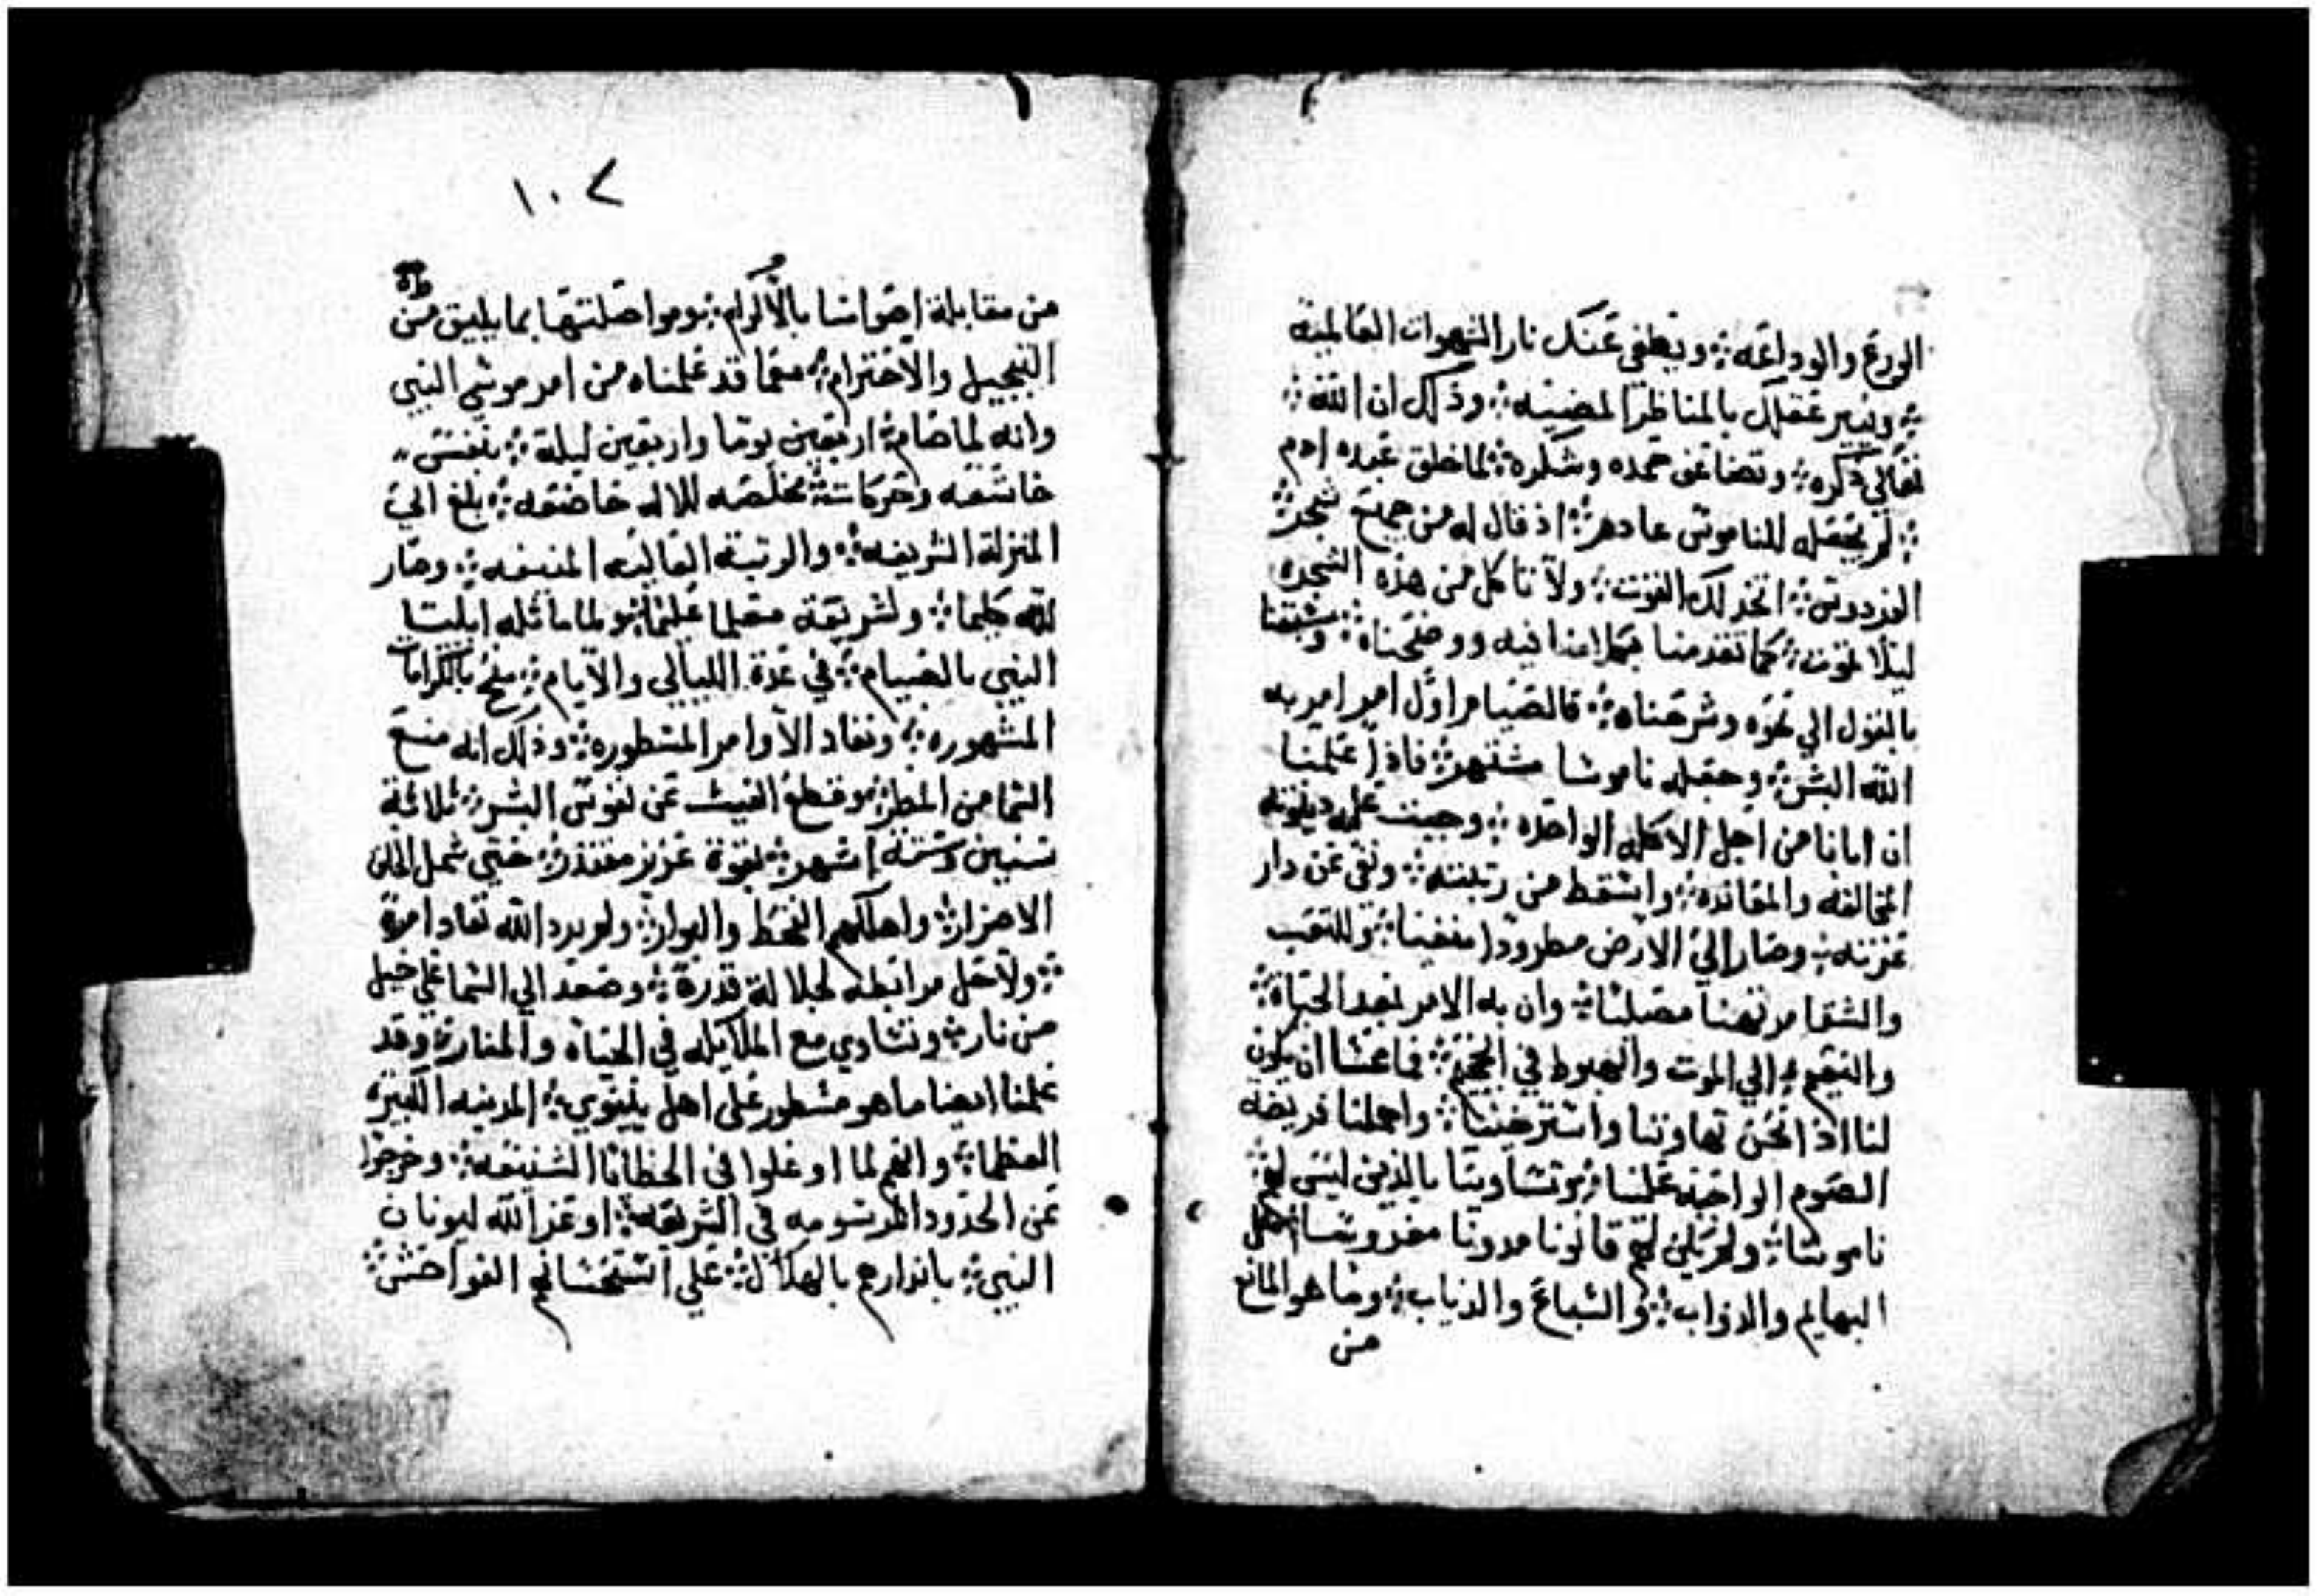 الورع والوداعه ؛ ويطفي عنك نار الشهوات العالمية
؛ وينير عقلك بالمناظر المضيئه ؛ وذلك ان الله ؛
تعالي ذكره ؛ وتضاعف حمده وشكره ؛ لما خلق عبده ادم
؛ لم يجعله للناموس عادم ؛ اذ قال له من جميع شجر ؛
الفردوس ؛ اتخد لك القوت ؛ ولا تاكل من هذه الشجره
ليلا تموت ؛ كما تقدمنا فيه ووضحناه ؛ وسبقنا
بالقول الي نحوه وشرحناه ؛ فالصيام اول امر امر به
الله البشر ؛ وجعله ناموسا مشتهر ؛ فاذا علمنا
ان ابانا من اجل الاكله الواحده ؛ وجبت عليه دينونة
المخالفه والمعانده ؛ واسقط من رتبته ؛ ونفي عن دار
عزته ؛ وصار الي الارض مطرودا منفيا ؛ وللتعب
والشقا مرتهنا مصليا ؛ وان به الامر بعد الحياة ؛
والنعيم ؛ الي الموت والهبوط في الجحيم ؛ فما عسا ان يكون
لنا اذا نحن تهاونا واسترخينا ؛ واهملنا فريضة
الصوم الواجبه علينا ؛ وتساوينا بالذين ليس لهم ؛
ناموسا ؛ ولم يكن لهم قانونا مدونا مغروسا
البهايم والدواب ؛ والسباع والدياب ؛ وما هو المانع
من
١٠٢
من مقابلة اصواتنا بالاكرام ؛ ومواصلتها بما يليق من
التبجيل والاحترام ؛ معما قد علمناه من امر موسي النبي
وانه لما صام ؛ اربعين يوما واربعين ليلة ؛ بنفس
خاشعه وحركات ؛ مخلصه للاله خاضعه ؛ بلغ الي
المنزلة الشريفه ؛ والرتبة العاليه المنيفه ؛ وصار
لله كليما ؛ ولشريعة معلما عليما ؛ ولما ماثله ايليا
النبي بالصيام ؛ في عدة الليالي والايام ؛ منح بالكرامات
المشهوره ؛ ونفاد الاوامر المسطوره ؛ وذلك انه منع
السما من المطر ؛ وقطع الغيث عن نفوس البشر ؛ ثلاثة
سنين وستة اشهر ؛ بقوة عزيز مقتدر ؛ حتي شمل الخلق
الاضرار ؛ واهلكهم القحط والبوار ؛ ولم يرد الله نفاد امره
؛ ولا حل مرابطه لجلالة قدره ؛ وصعد الي السما علي خيل
من نار ؛ وتساوي مع الملايكه في الحياه والمنار ؛ وقد
علمنا ايضا ما هو مسطور علي اهل نينوي ؛ المدينه الكبيره
العظما ؛ وانهم لما اوغلوا في الخطايا الشنيعه ؛ وخرجوا
عن الحدود المرسومه في الشريعه ؛ اوعز الله ليونان
النبي ؛ بانذارهم بالهلاك ؛ علي استحسانهم الفواحش ؛